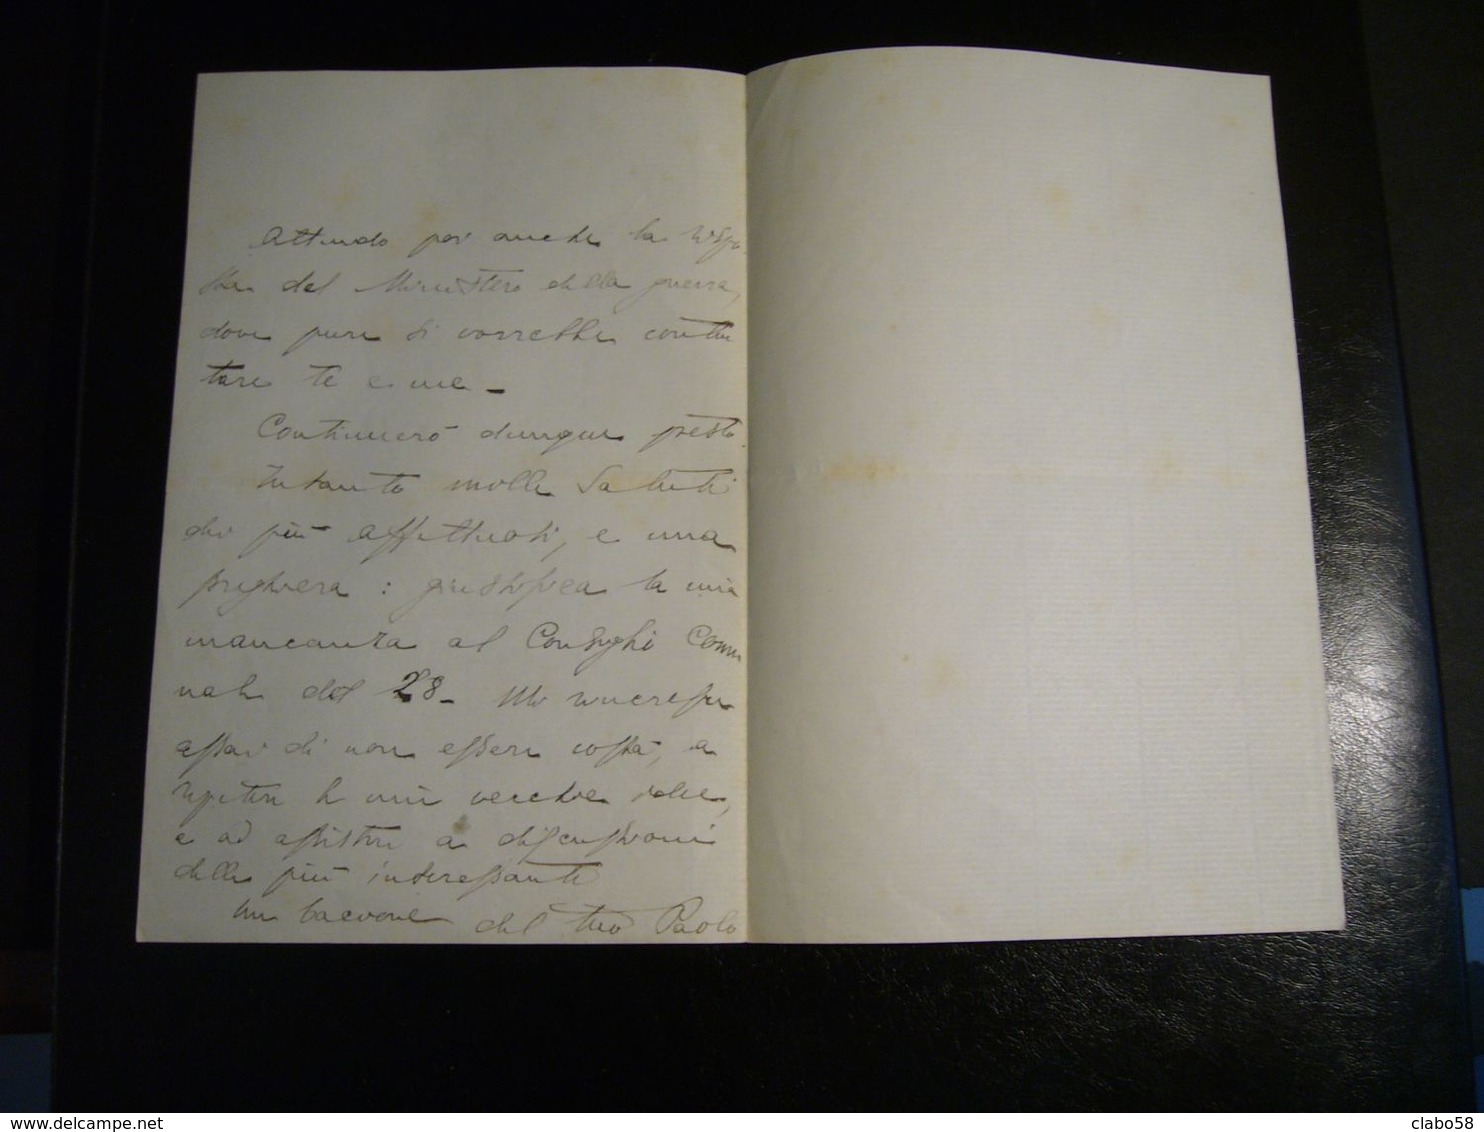 Attendo poi anche la rispo-
sta del Ministero della guerra,
dove pure si vorrebbe conten
tare te e me -
Continuerò dunque presto.
Intanto mille saluti
dei più affettuosi, e una
preghiera: giustifica la mia
mancanza al Consiglio Comu
nale del 28 - Mi rincresce
assai di non essere costà, a
ripetere le mie vecchie idee,
e ad assistere a discussioni
delle più interessanti
Un bacione del tuo Paolo
www.delcampe.net
clabo58